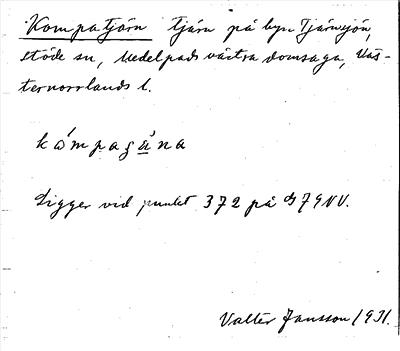 Kompatjärn tjärn på byn Tjärnsjön,
Stöde sn, Medelpads västra domsaga, Väs-
ternorrlands l.
Ligger vid punkt 372 på
Valter Jansson 1931.